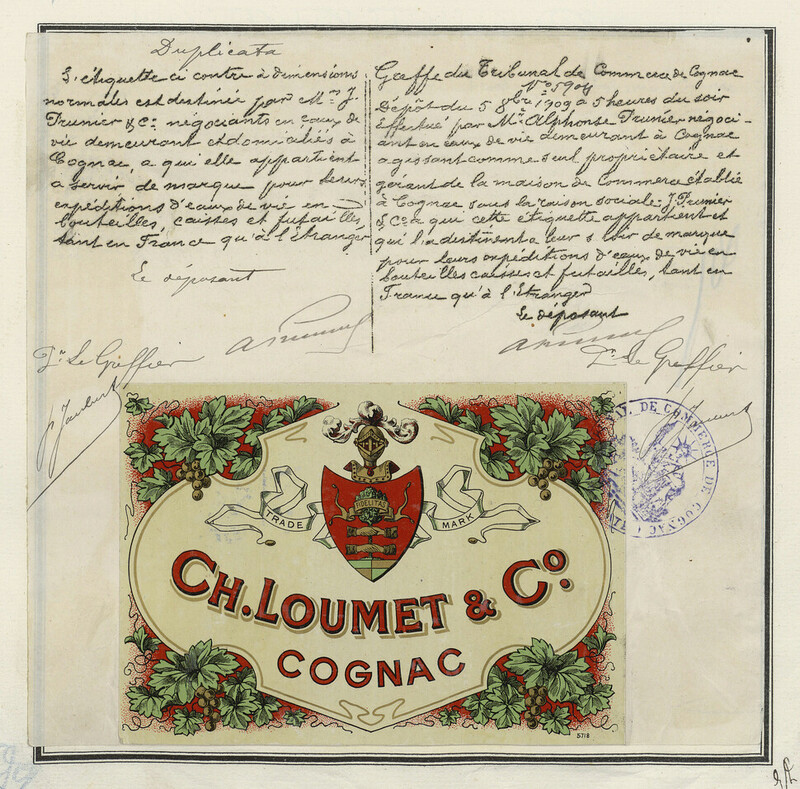 Duplicata
L'étiquette ci contre à dimensions
normales est destinée par Mrs J.
Prunier & Co négociants en eaux de
vie demeurant et domiciliés à
Cognac, a qui elle appartient
a servir de marque pour leurs
expéditions d'eaux de vie en
bouteilles, caisses et futailles
tant en France qu'à l'Etranger
Le déposant
Pr Le Greffier
Greffe du Tribunal de Commerce de Cognac
No 5904
Dépôt du 5 8bre 1909 a 5 heures du soir
Effectué par Mr Alphonse Prunier négoci-
ant en eaux de vie demeurant à Cognac
agissant comme seul propriétaire et
gérant de la maison de Commerce établie
à Cognac sous la raison sociale J. Prunier
& Co a qui cette étiquette appartient et
qui la destinent a leur servir de marque
pour leurs expéditions d'eaux de vie en
bouteilles caisses et futailles, tant en
France qu'à l'Etranger
Le déposant
Pr Le Greffier
DE COMMERCE DE COGNAC
FIDELITAS
TRADE MARK
CH. LOUMET & Co.
COGNAC
5718